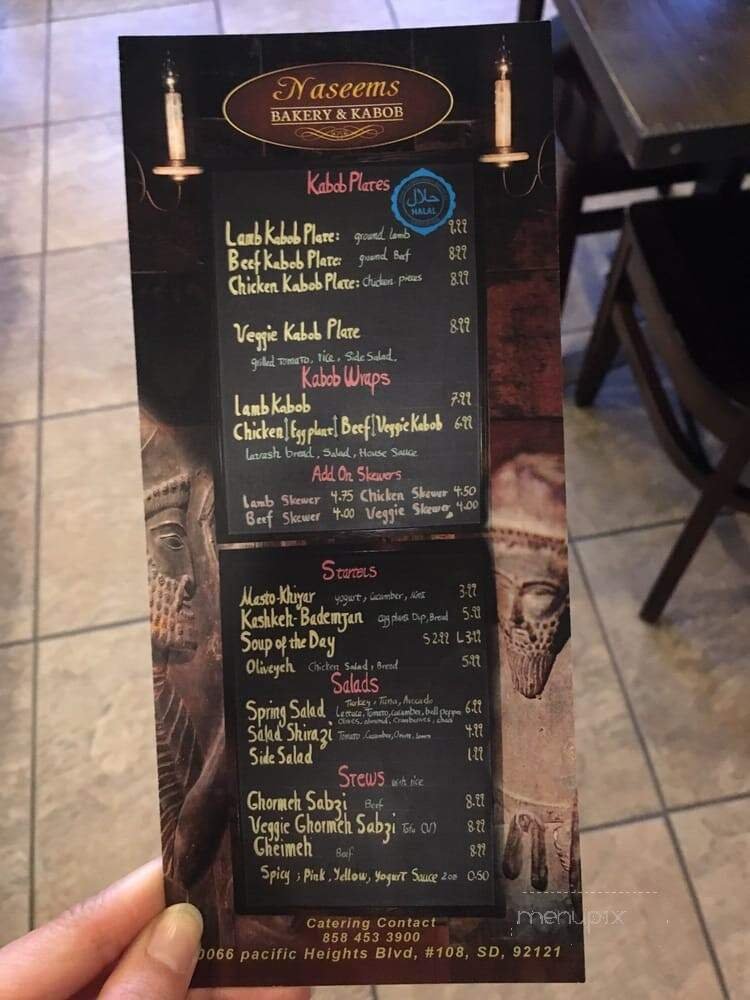 Naseems
BAKERY & KABOB
Kabob Plates
حلال
HALAL
Lamb Kabob Plate: ground lamb 9.99
Beef Kabob Plate: ground Beef 8.99
Chicken Kabob Plate: Chicken pieces 8.99
Veggie Kabob Plate 8.99
grilled Tomato, rice, Side Salad.
Kabob Wraps
Lamb Kabob 7.99
Chicken | Eggplant | Beef | Veggie Kabob 6.99
lavash bread, Salad, House Sauce
Add On Skewers
Lamb Skewer 4.75 Chicken Skewer 4.50
Beef Skewer 4.00 Veggie Skewer 4.00
Starters
Masto-Khiyar yogurt, Cucumber, Mint 3.99
Kashkeh-Bademjan egg plant Dip, Bread 5.99
Soup of the Day S 2.99 L 3.99
Oliveyeh Chicken Salad, Bread 5.99
Salads
Turkey, Tuna, Avocado
Spring Salad Lettuce, Tomato, Cucumber, bell peppers 6.99
Olives, almond, Cranberries,
Salad Shirazi Tomato, Cucumber, Onion, 4.99
Side Salad 1.99
Stews with rice
Ghormeh Sabzi Beef 8.99
Veggie Ghormeh Sabzi Tofu (V) 8.99
Gheimeh Beef 8.99
Spicy, Pink, Yellow, Yogurt Sauce 2oz 0.50
Catering Contact
858 453 3900
0066 pacific Heights Blvd, #108, SD, 92121
menupix